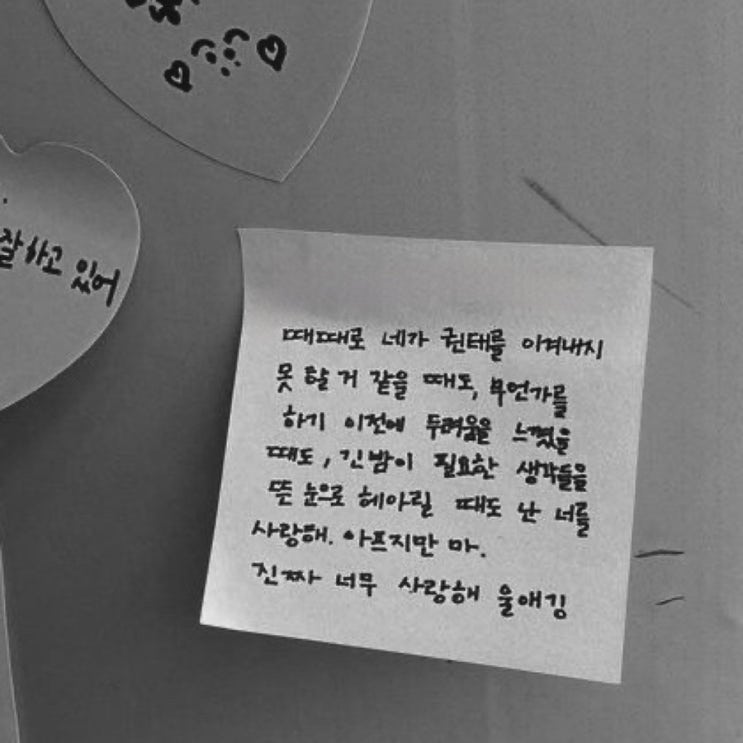 잘하고 있어
때때로 네가 권태를 이겨내지
못 할 거 같을 때도, 무언가를
하기 이전에 두려움을 느꼈을
때도, 긴밤이 필요한 생각들을
뜬 눈으로 헤아릴 때도 난 너를
사랑해. 아프지만 마.
진짜 너무 사랑해 울애깅